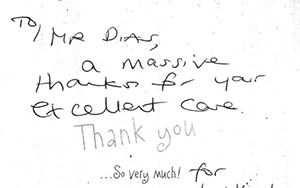 To/ MR DIAS,
a massive
thanks for your
excellent care.
Thank you
...So very much! for